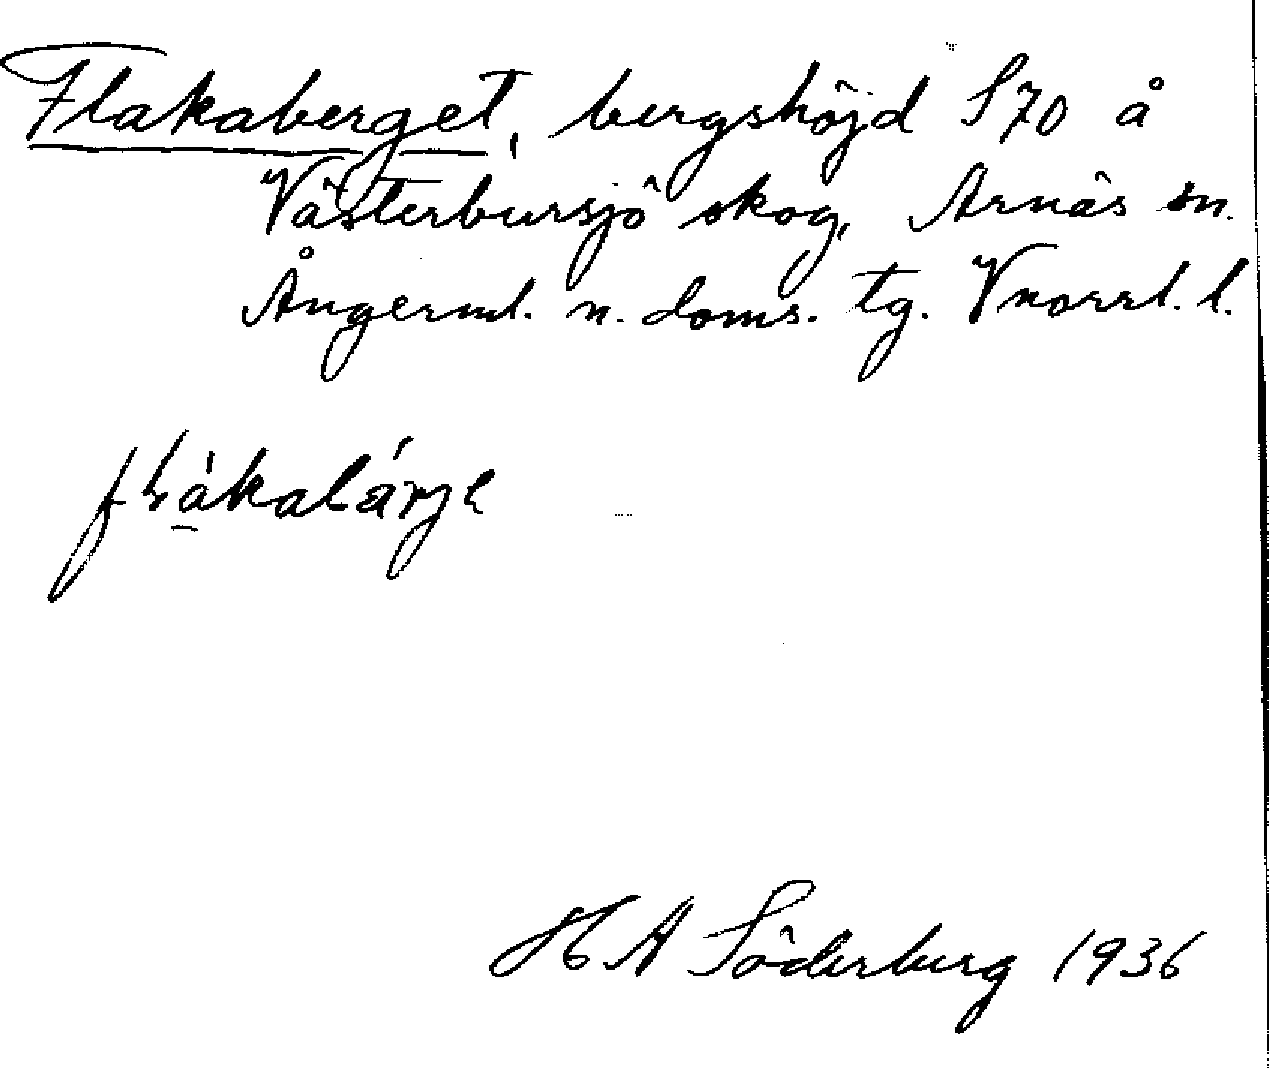 Flakaberget, bergshöjd S70 å
Västerbursjö skog, Arnäs sn.
Ångerml. n. doms. tg. Vnorrl. l.
H A Söderberg 1936